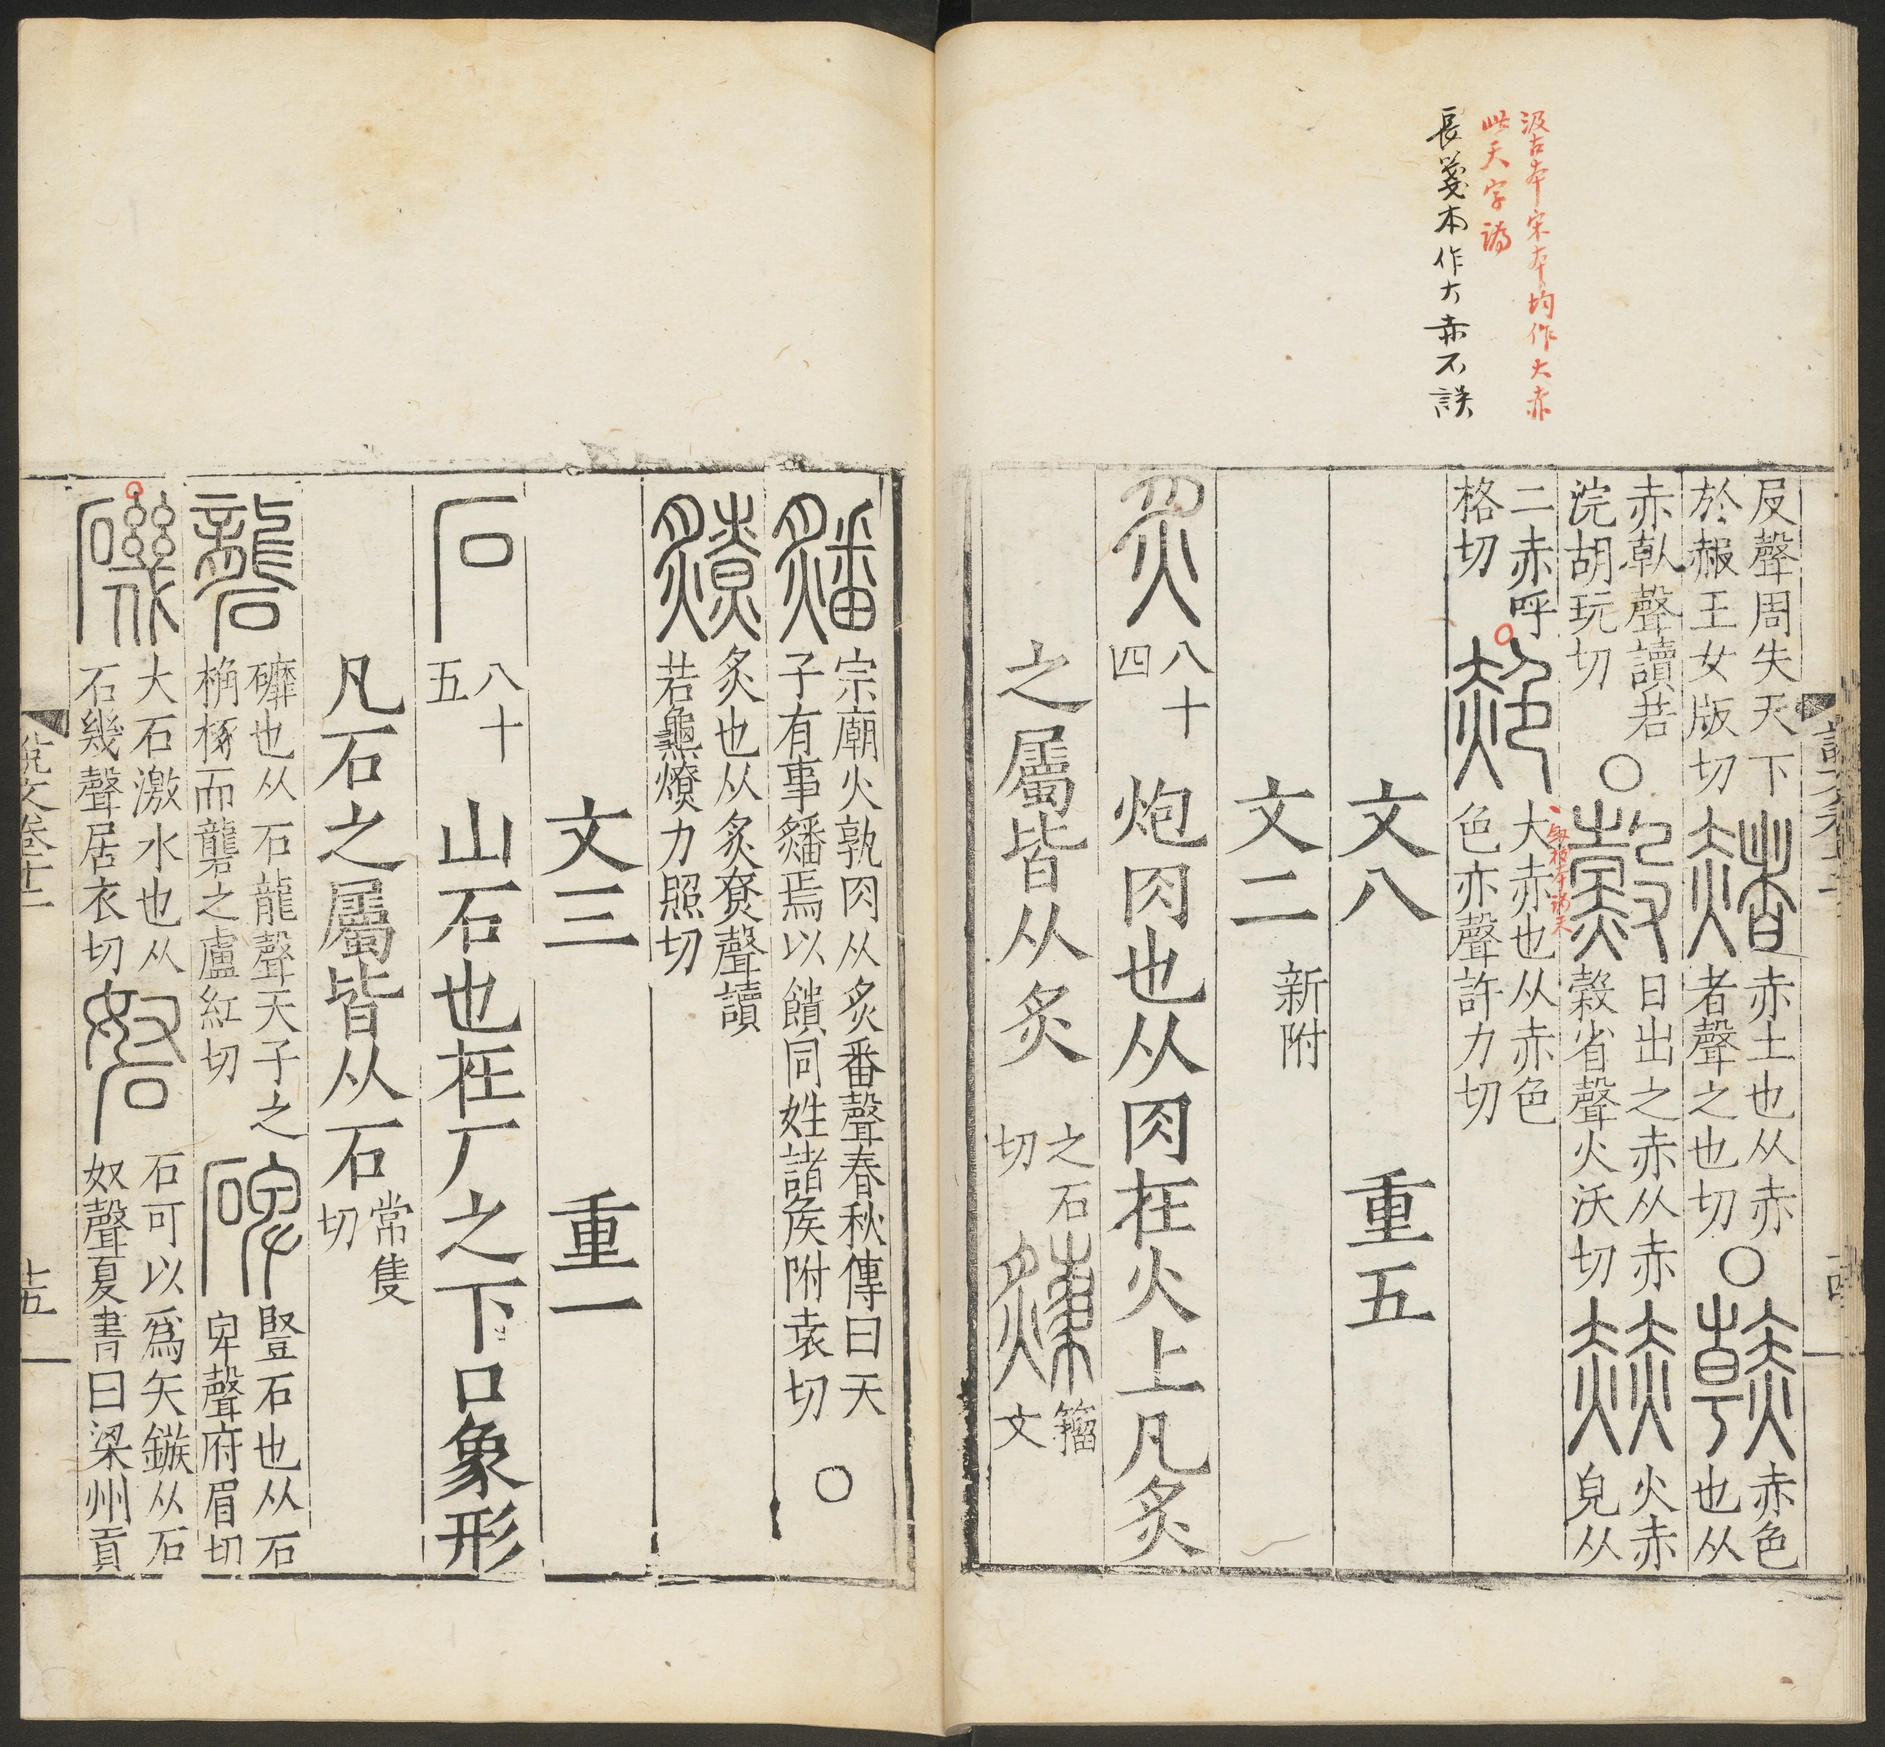 汲古本宋本均作大赤
此天字譌
長箋本作大赤不誤
𠬝聲周失天下
於赧王女版切
赭
赤土也从赤
者聲之也切
○
赤色
也从
赤倝聲讀若
浣胡玩切
○
日出之赤从赤
㱿省聲火沃切
赫
火赤
皃从
二赤呼
格切
赩
大赤也从赤色
色亦聲許力切
文八 重五
文二 新附
炙
八十
四
炮肉也从肉在火上凡炙
之屬皆从炙
之石
切
籀
文
宗廟火孰肉从炙番聲春秋傳曰天
子有事繙焉以饋同姓諸侯附袁切
○
炙也从炙尞聲讀
若龜燎力照切
文三 重一
石
八十
五
山石也在厂之下口象形
凡石之屬皆从石
常隻
切
礱
䃺也从石龍聲天子之
桷椓而礱之盧紅切
碑
豎石也从石
卑聲府眉切
磯
大石激水也从
石幾聲居衣切
砮
石可以爲矢鏃从石
奴聲夏書曰梁州貢
說文卷十二
十五